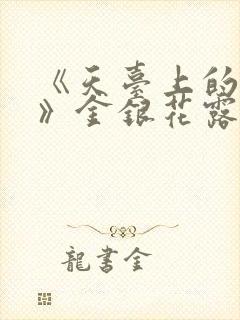 《天臺上的
》金銀花露
龍書金